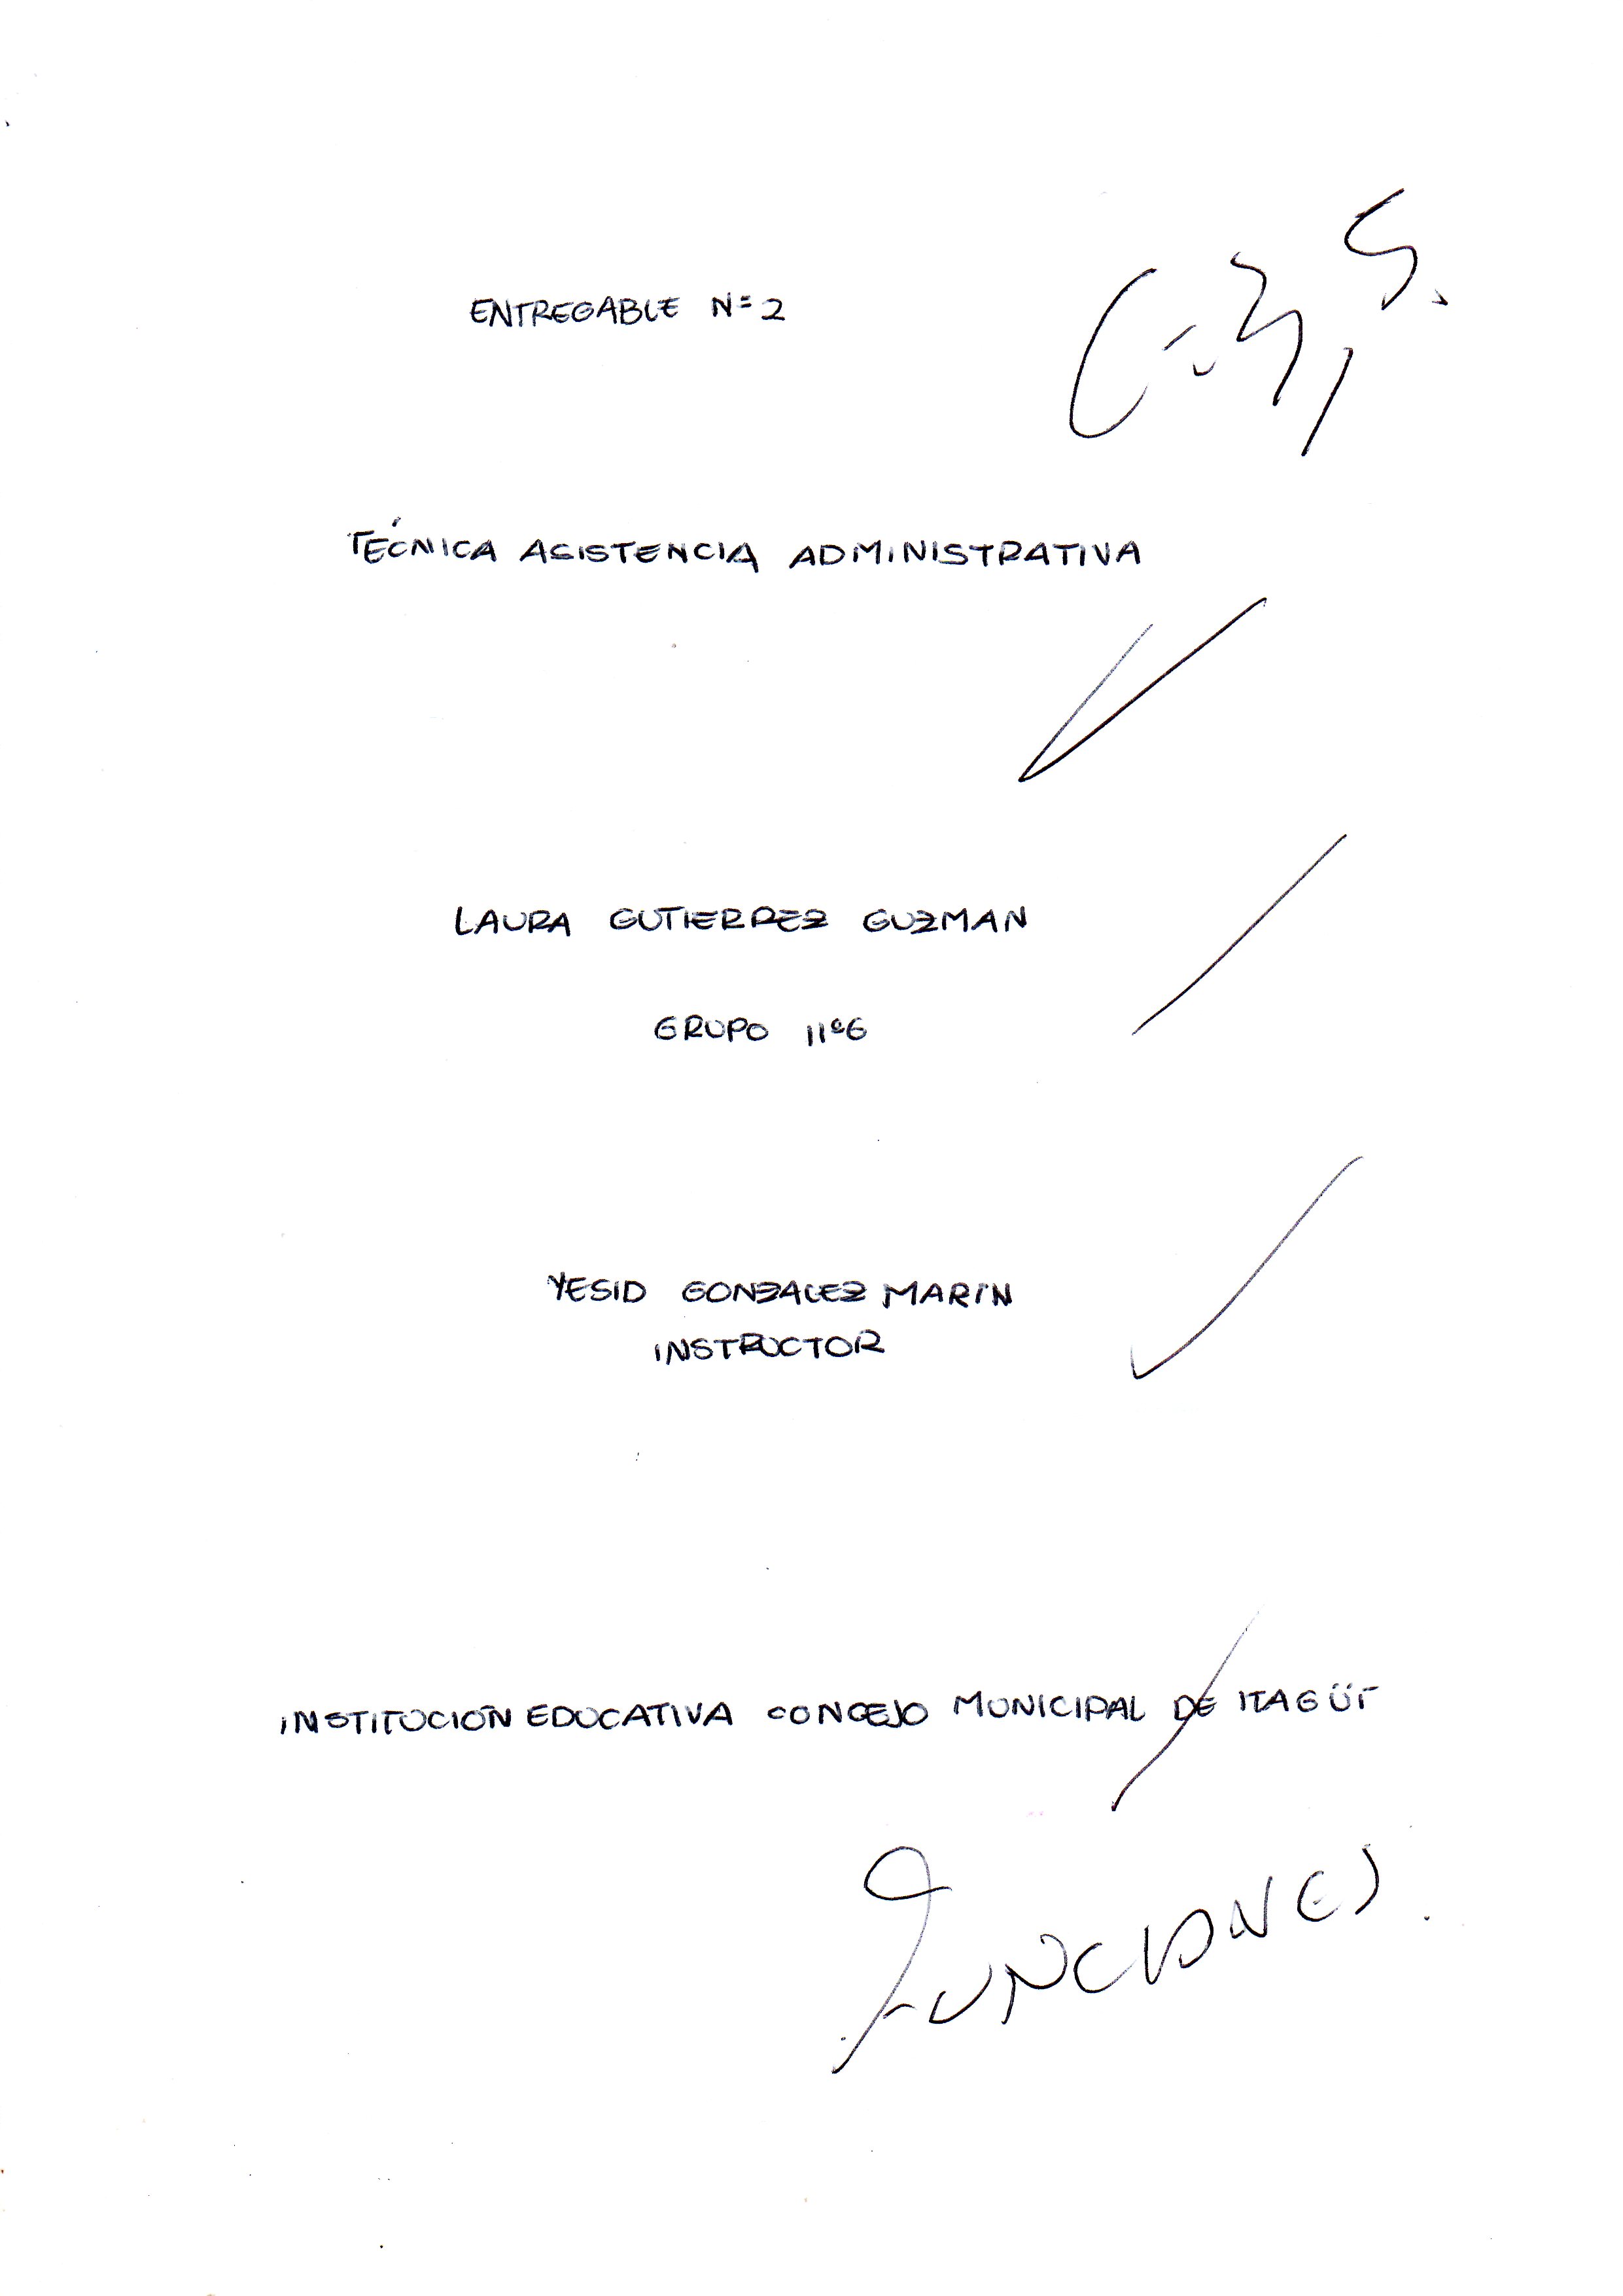 ENTREGABLE N=2
C=3,5.
TÉCNICA ASISTENCIA ADMINISTRATIVA
LAURA GUTIERREZ GUZMAN
GRUPO 11°6
YESID GONZALEZ MARIN
INSTRUCTOR
INSTITUCIÓN EDUCATIVA CONCEJO MUNICIPAL DE ITAGÜÍ
FUNCIONES.